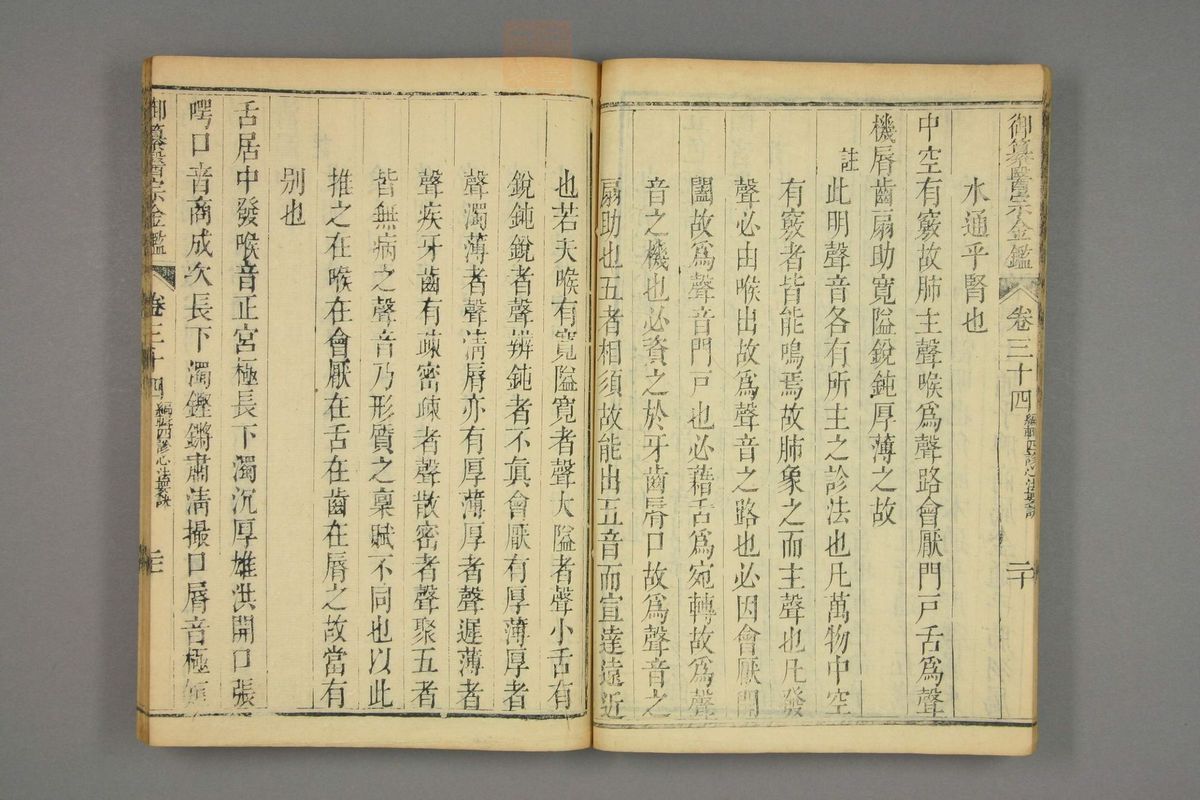 御纂醫宗金鑑 卷三十四 編輯四診心法要訣 二十
水通乎腎也
中空有竅故肺主聲喉爲聲路會厭門戸舌爲聲
機脣齒扇助寬隘銳鈍厚薄之故
註
此明聲音各有所主之診法也凡萬物中空
有竅者皆能鳴焉故肺象之而主聲也凡發
聲必由喉出故爲聲音之路也必因會厭開
闔故爲聲音門戸也必藉舌爲宛轉故爲聲
音之機也必資之於牙齒脣口故爲聲音之
扇助也五者相須故能出五音而宣達遠近
也若夫喉有寬隘寬者聲大隘者聲小舌有
銳鈍銳者聲辨鈍者不眞會厭有厚薄厚者
聲濁薄者聲淸脣亦有厚薄厚者聲遲薄者
聲疾牙齒有疎密疎者聲散密者聲聚五者
皆無病之聲音乃形質之稟賦不同也以此
推之在喉在會厭在舌在齒在脣之故當有
別也
舌居中發喉音正宮極長下濁沉厚雄洪開口張
𠵀口音商成次長下濁鏗鏘肅淸撮口脣音極短
御纂醫宗金鑑 卷三十四 編輯四診心法要訣